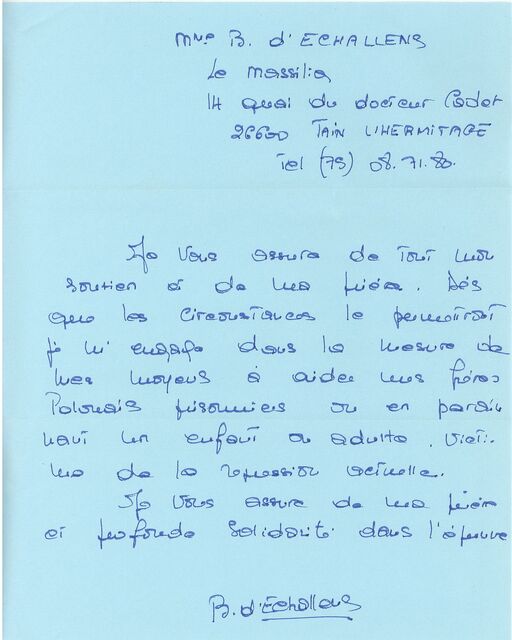 Mme B. d'ECHALLENS
Le Massilia
14 quai du docteur Cadet
26600 TAIN L'HERMITAGE
Tel (75) 08.71.80.
Je vous assure de tout mon
soutien et de ma prière. Dès
que les circonstances le permettront
je m'engage dans la mesure de
mes moyens à aider mes frères
Polonais prisonniers ou en parrai
nant un enfant ou adulte. Victi-
me de la repression actuelle.
Je vous assure de ma prière
et profonde solidarité dans l'épreuve
B. d'Echallens